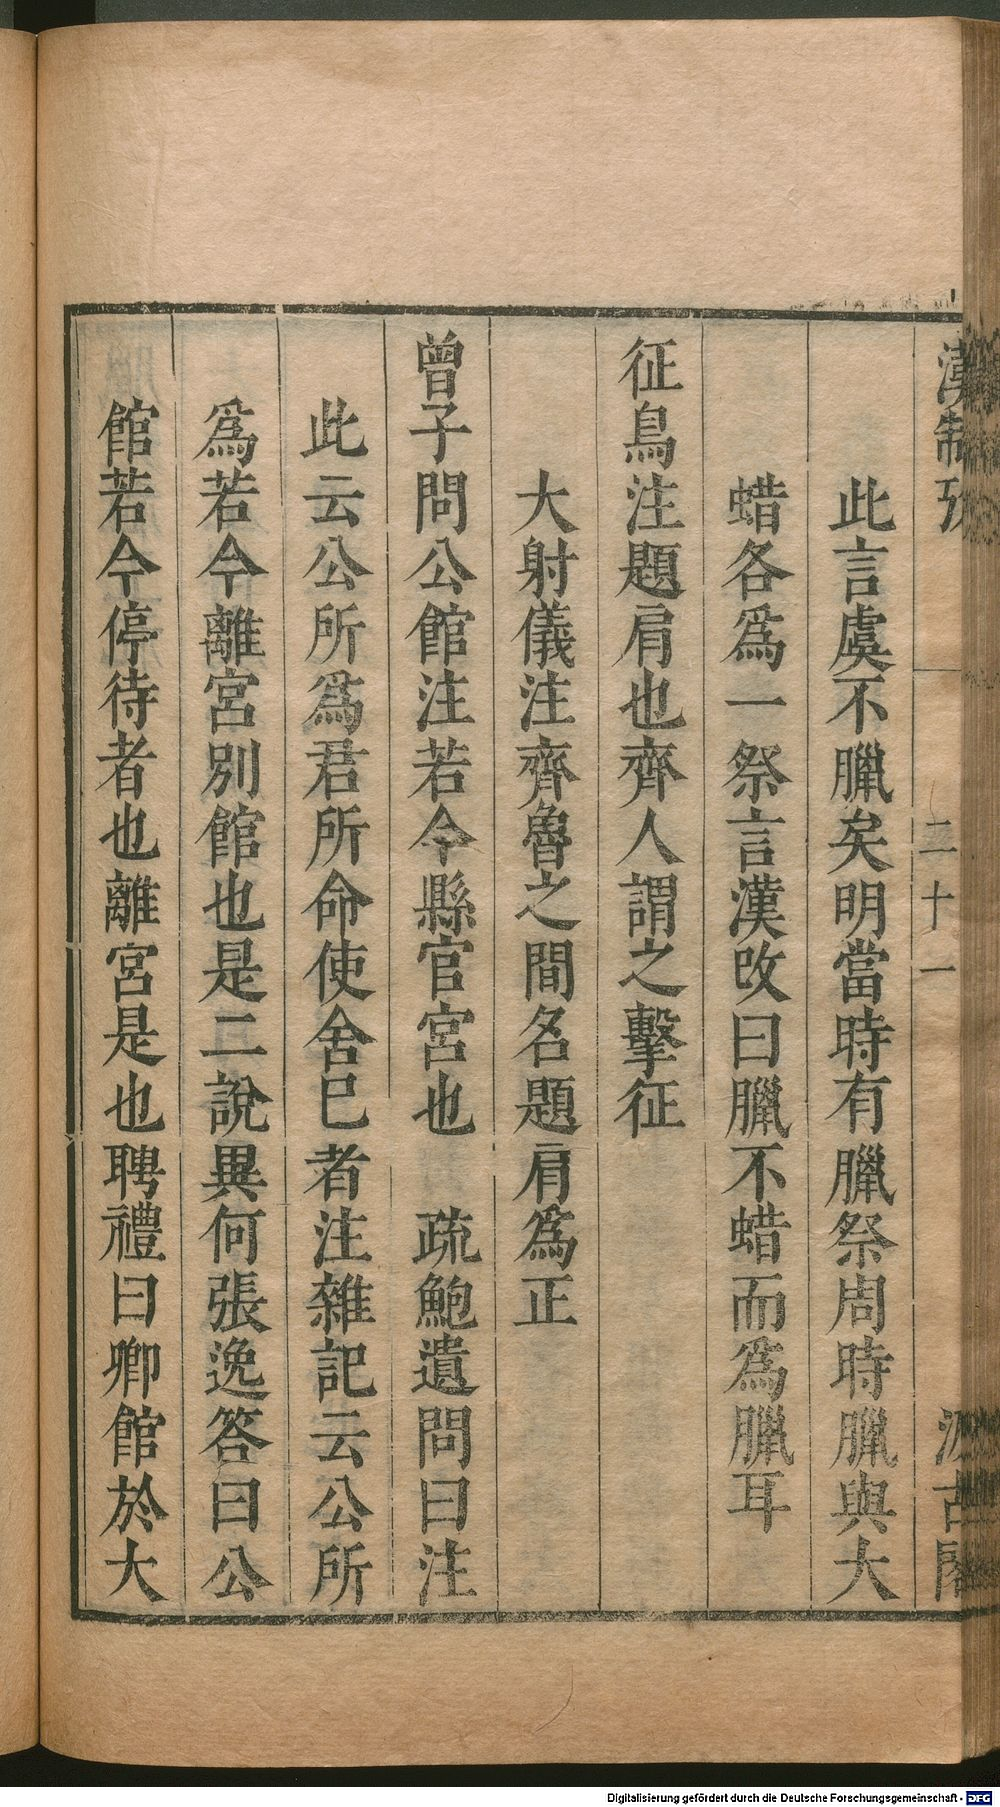 漢制攷
二十一
汲古閣
此言虞不臘矣明當時有臘祭周時臘與大
蜡各爲一祭言漢改曰臘不蜡而爲臘耳
征鳥注題肩也齊人謂之擊征
大射儀注齊魯之間名題肩爲正
曾子問公館注若今縣官宮也　疏鮑遺問曰注
此云公所爲君所命使舍巳者注雜記云公所
爲若今離宮別館也是二說異何張逸答曰公
館若今停待者也離宮是也聘禮曰卿館於大
Digitalisierung gefördert durch die Deutsche Forschungsgemeinschaft - DFG